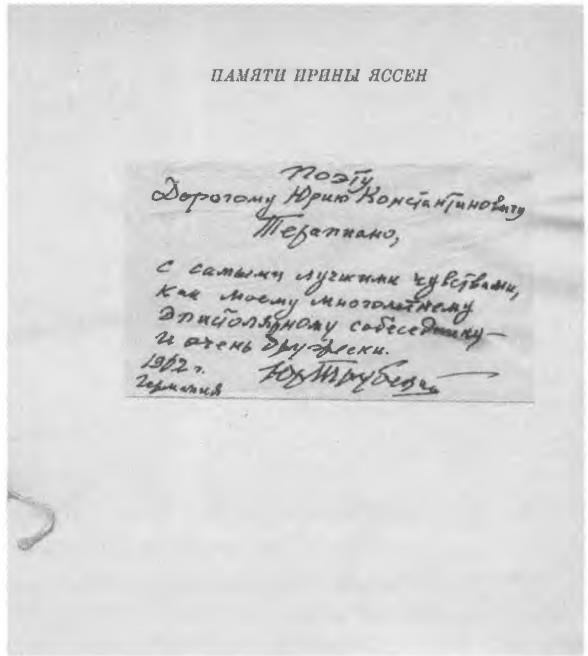 ПАМЯТИ ИРИНЫ ЯССЕН
поэту
Дорогому Юрию Константиновичу
Терапиано,
с самыми лучшими чувствами,
как моему многолетнему
эпистолярному собеседнику —
и очень дружески.
Юр Трубецкой
1962 г.
Германия